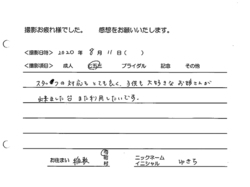 撮影お疲れ様でした。 感想をお願いいたします。
<撮影日時> 2020年 8月 11日( )
<撮影項目> 成人 七五三 ブライダル 記念 その他
スタッフの対応もとても良く、子供も大好きなお姉さんが
出来ました。また利用したいです。
お住まい 市 町 村 ニックネーム イニシャル ゆきち